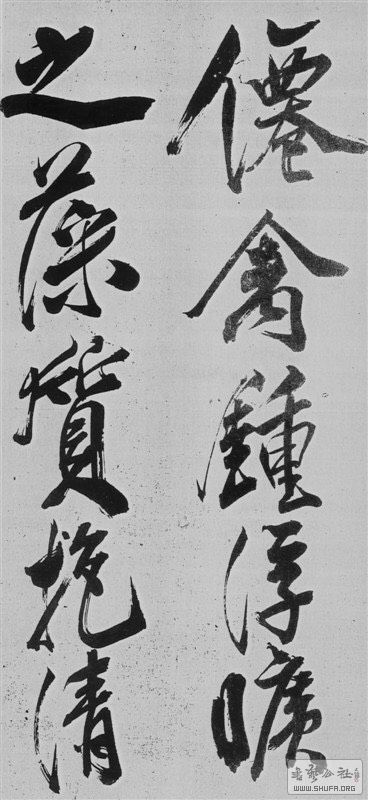 僊禽鍾浮曠
之藻質抱清
書藝公社
WWW.SHUFA.ORG